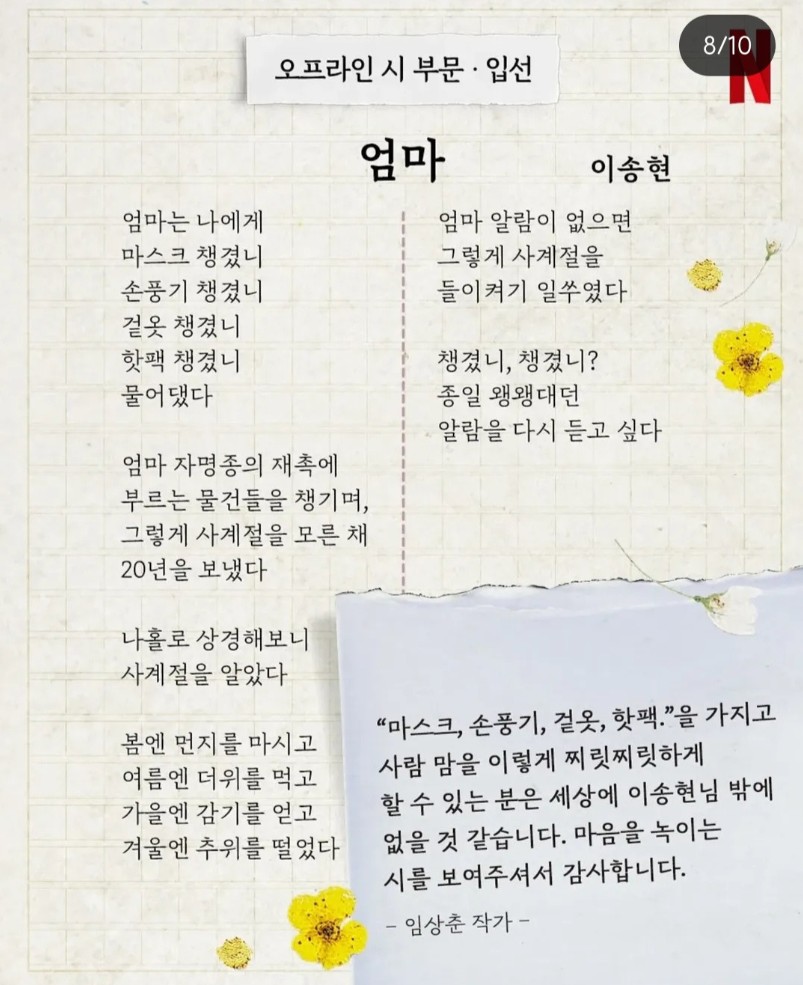 8/10
오프라인 시 부문 · 입선
엄마
이송현
엄마는 나에게
마스크 챙겼니
손풍기 챙겼니
걸옷 챙겼니
핫팩 챙겼니
물어댔다
엄마 자명종의 재촉에
부르는 물건들을 챙기며,
그렇게 사계절을 모른 채
20년을 보냈다
나홀로 상경해보니
사계절을 알았다
봄엔 먼지를 마시고
여름엔 더위를 먹고
가을엔 감기를 얻고
겨울엔 추위를 떨었다
엄마 알람이 없으면
그렇게 사계절을
들이켜기 일쑤였다
챙겼니, 챙겼니?
종일 왱왱대던
알람을 다시 듣고 싶다
“마스크, 손풍기, 겉옷, 핫팩.”을 가지고
사람 맘을 이렇게 찌릿찌릿하게
할 수 있는 분은 세상에 이송현님 밖에
없을 것 같습니다. 마음을 녹이는
시를 보여주셔서 감사합니다.
– 임상춘 작가 –